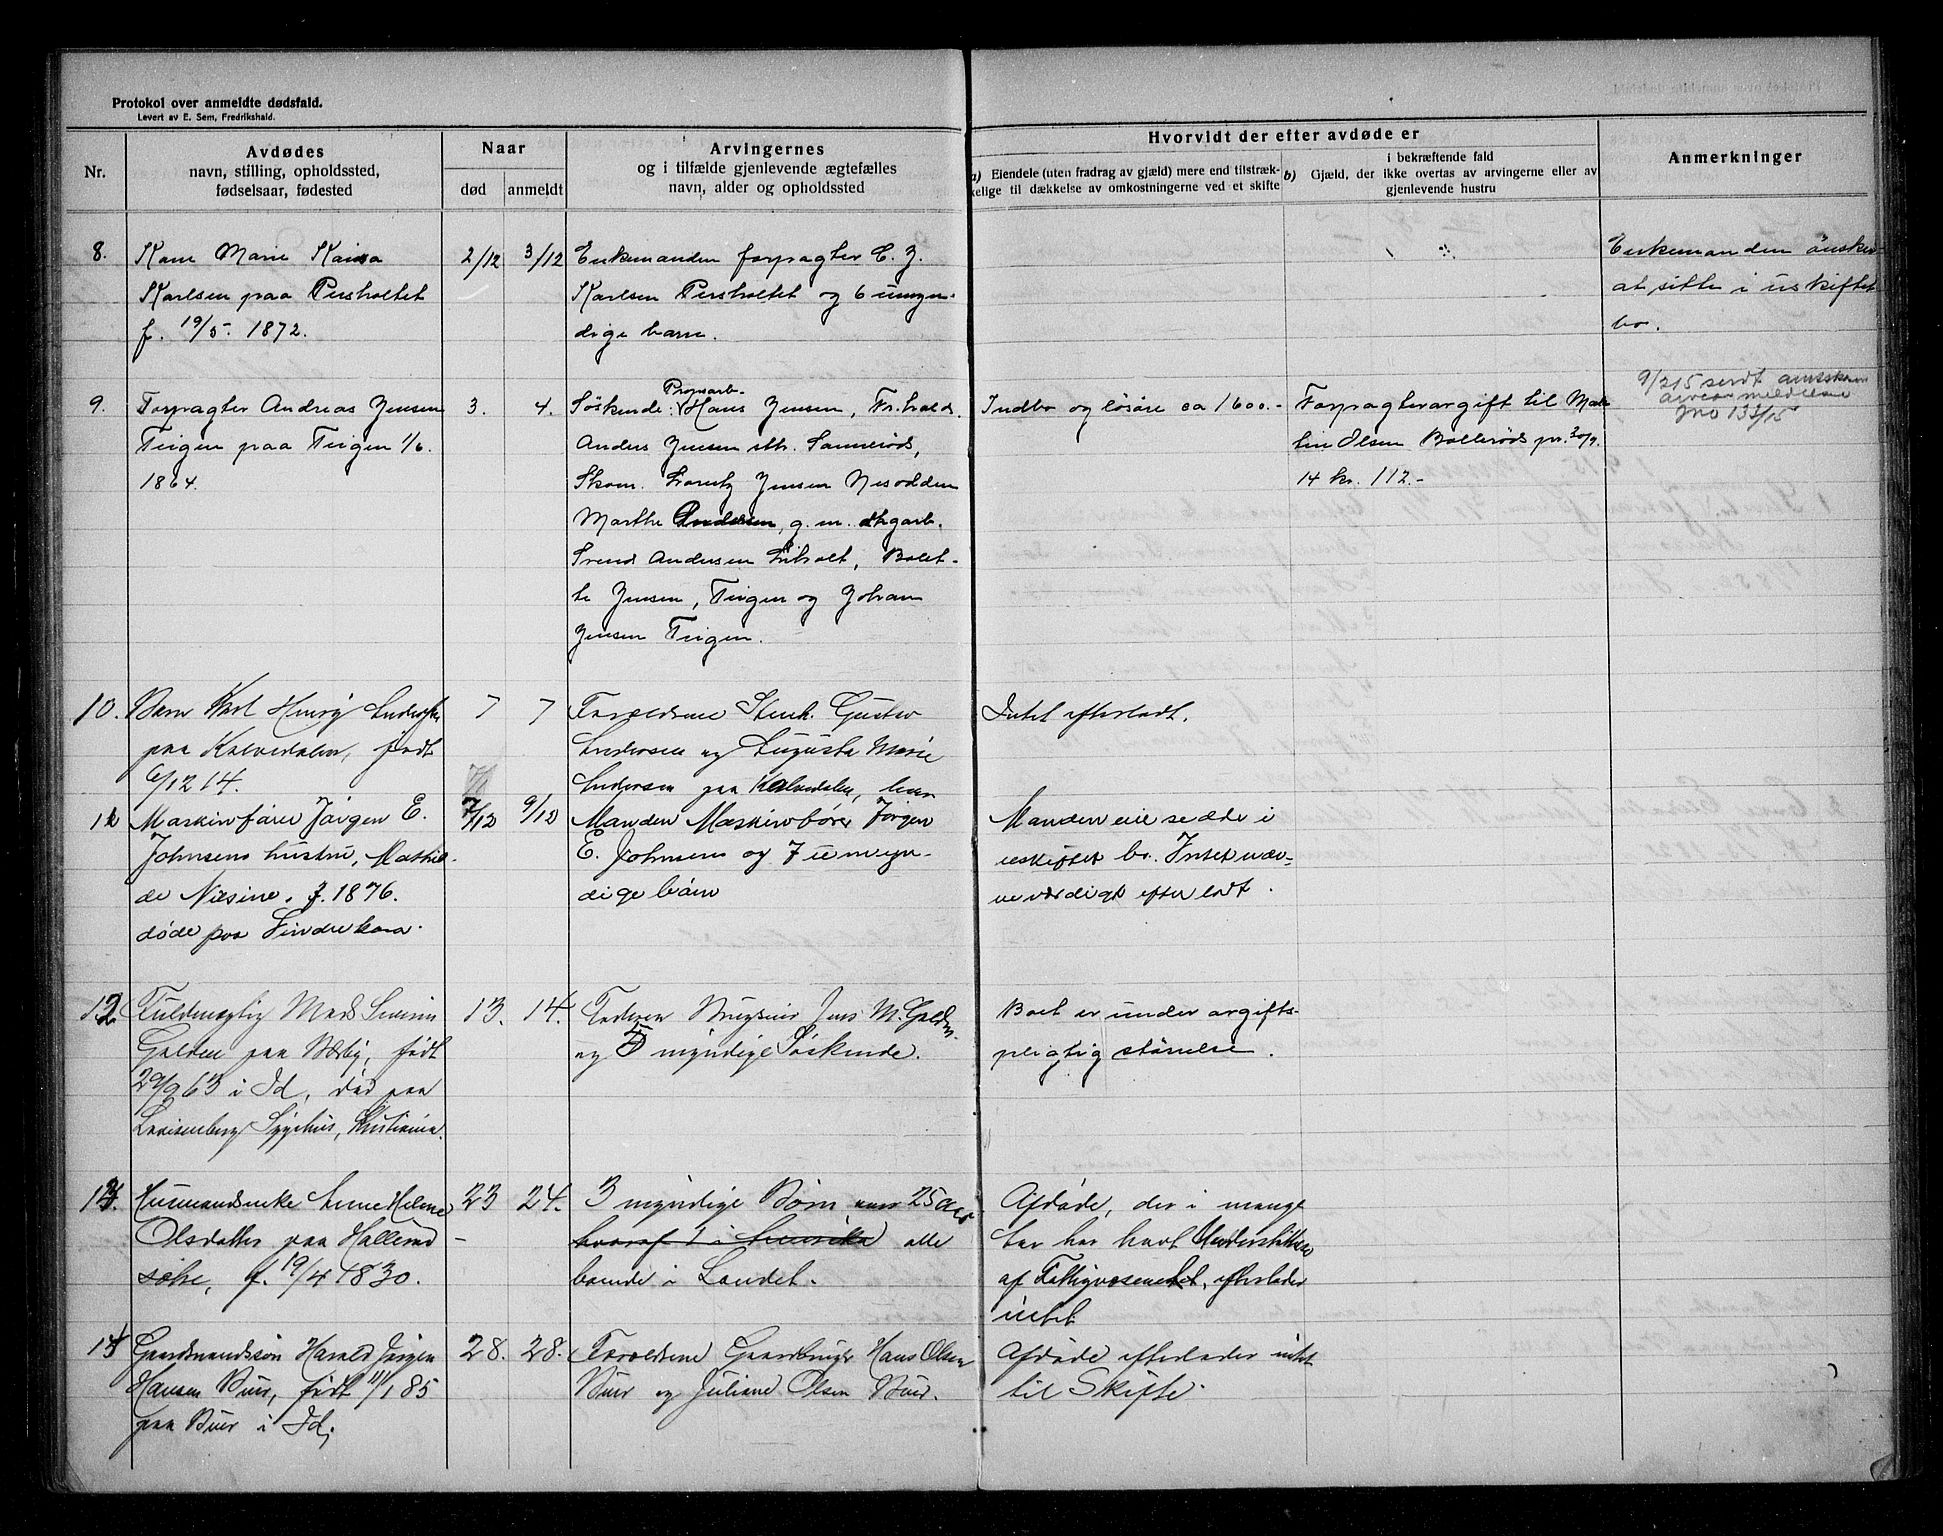 Protokol over anmeldte dødsfald.
Levert av E. Sem, Fredrikshald.
Nr.
Avdødes
navn, stilling, opholdssted,
fødselsaar, fødested
Naar
død
anmeldt
Arvingernes
og i tilfælde gjenlevende ægtefælles
navn, alder og opholdssted
Hvorvidt der efter avdøde er
a) Eiendele (uten fradrag av gjæld) mere end tilstræk-
kelige til dækkelse av omkostningerne ved et skifte
b) Gjæld, der
i bekræftende fald
ikke overtas av arvingerne eller av
gjenlevende hustru
Anmerkninger
8.
Karn Marie Kaisa
Karlsen paa Persholtet
f. 19/5. 1872.
2/12
3/12
Enkemanden forpagter C. J.
Karlsen Persholtet og 6 umyn-
dige barn.
Enkemanden ønsker
at sitte i uskiftet
bo.
9.
Forpagter Andreas Jensen
Teigen paa Teigen 1/6.
1864.
3.
4.
Propsarb.
Søskende: Hans Jensen, Fr.hald.
Anders Jensen sth. Sannerød,
Skom. Lorentz Jensen Nesodden
Marthe Andersen, g. m. dagarb.
Svend Andersen Liholt, Bolet-
te Jensen, Teigen og Johan
Jensen Teigen.
Indbo og løsøre ca 1600.-
Forpagteravgift til Mar-
tin Olsen Bollerød pr. 30/9.
14 kr. 112.-
9/2 15 sendt amtsskm
Jno 133/15
10.
Barn Karl Henry Andersen
paa Kalvedalen, født
6/12 14.
7
7
Forældrene Stenh. Gustav
Andersen og Augusta Marie
Andersen paa Kalvedalen,
Intet efterladt.
11
Maskinfører Jørgen E.
Johnsens hustru, Mathil-
de Nisine. f. 1876.
døde paa Sindrekara.
7/12
9/12
Manden Maskinfører Jørgen
E. Johnsens og 7 umyn-
dige barn
Manden eie sedde i
uskiftet bo. Intet næv-
neværdigt efterladt.
12
Fuldmægtig Mads Severin
Gulden paa Næsby, født
29/9 63 i Id, død paa
Lovisenberg Sygehus, Kristiania.
13.
14.
Faderen Brugseier Jens M. Gulden
og 5 myndige Søskende.
Boet er under avgifts-
pligtig størrelse.
13.
Husmandsenke Anne Helene
Olsdatter paa Hallerød
søhe, f. 19/4 1830.
23
24.
3 myndige Børn over 25 Aar
hvoraf 1 i Amerika alle
boende i Landet.
Afdøde, der i mange
Aar har havt Understøttelse
af Fattigvæsenet, efterlader
intet
14
Gaardmandssøn Harald Jørgen
Hansen Buer, født 11/1 85
paa Buer i Id,
28.
28.
Forældrene Gaardbruger Hans Olsen
Buer og Juliane Olsen Buer.
Afdøde efterlader intet
til Skifte.